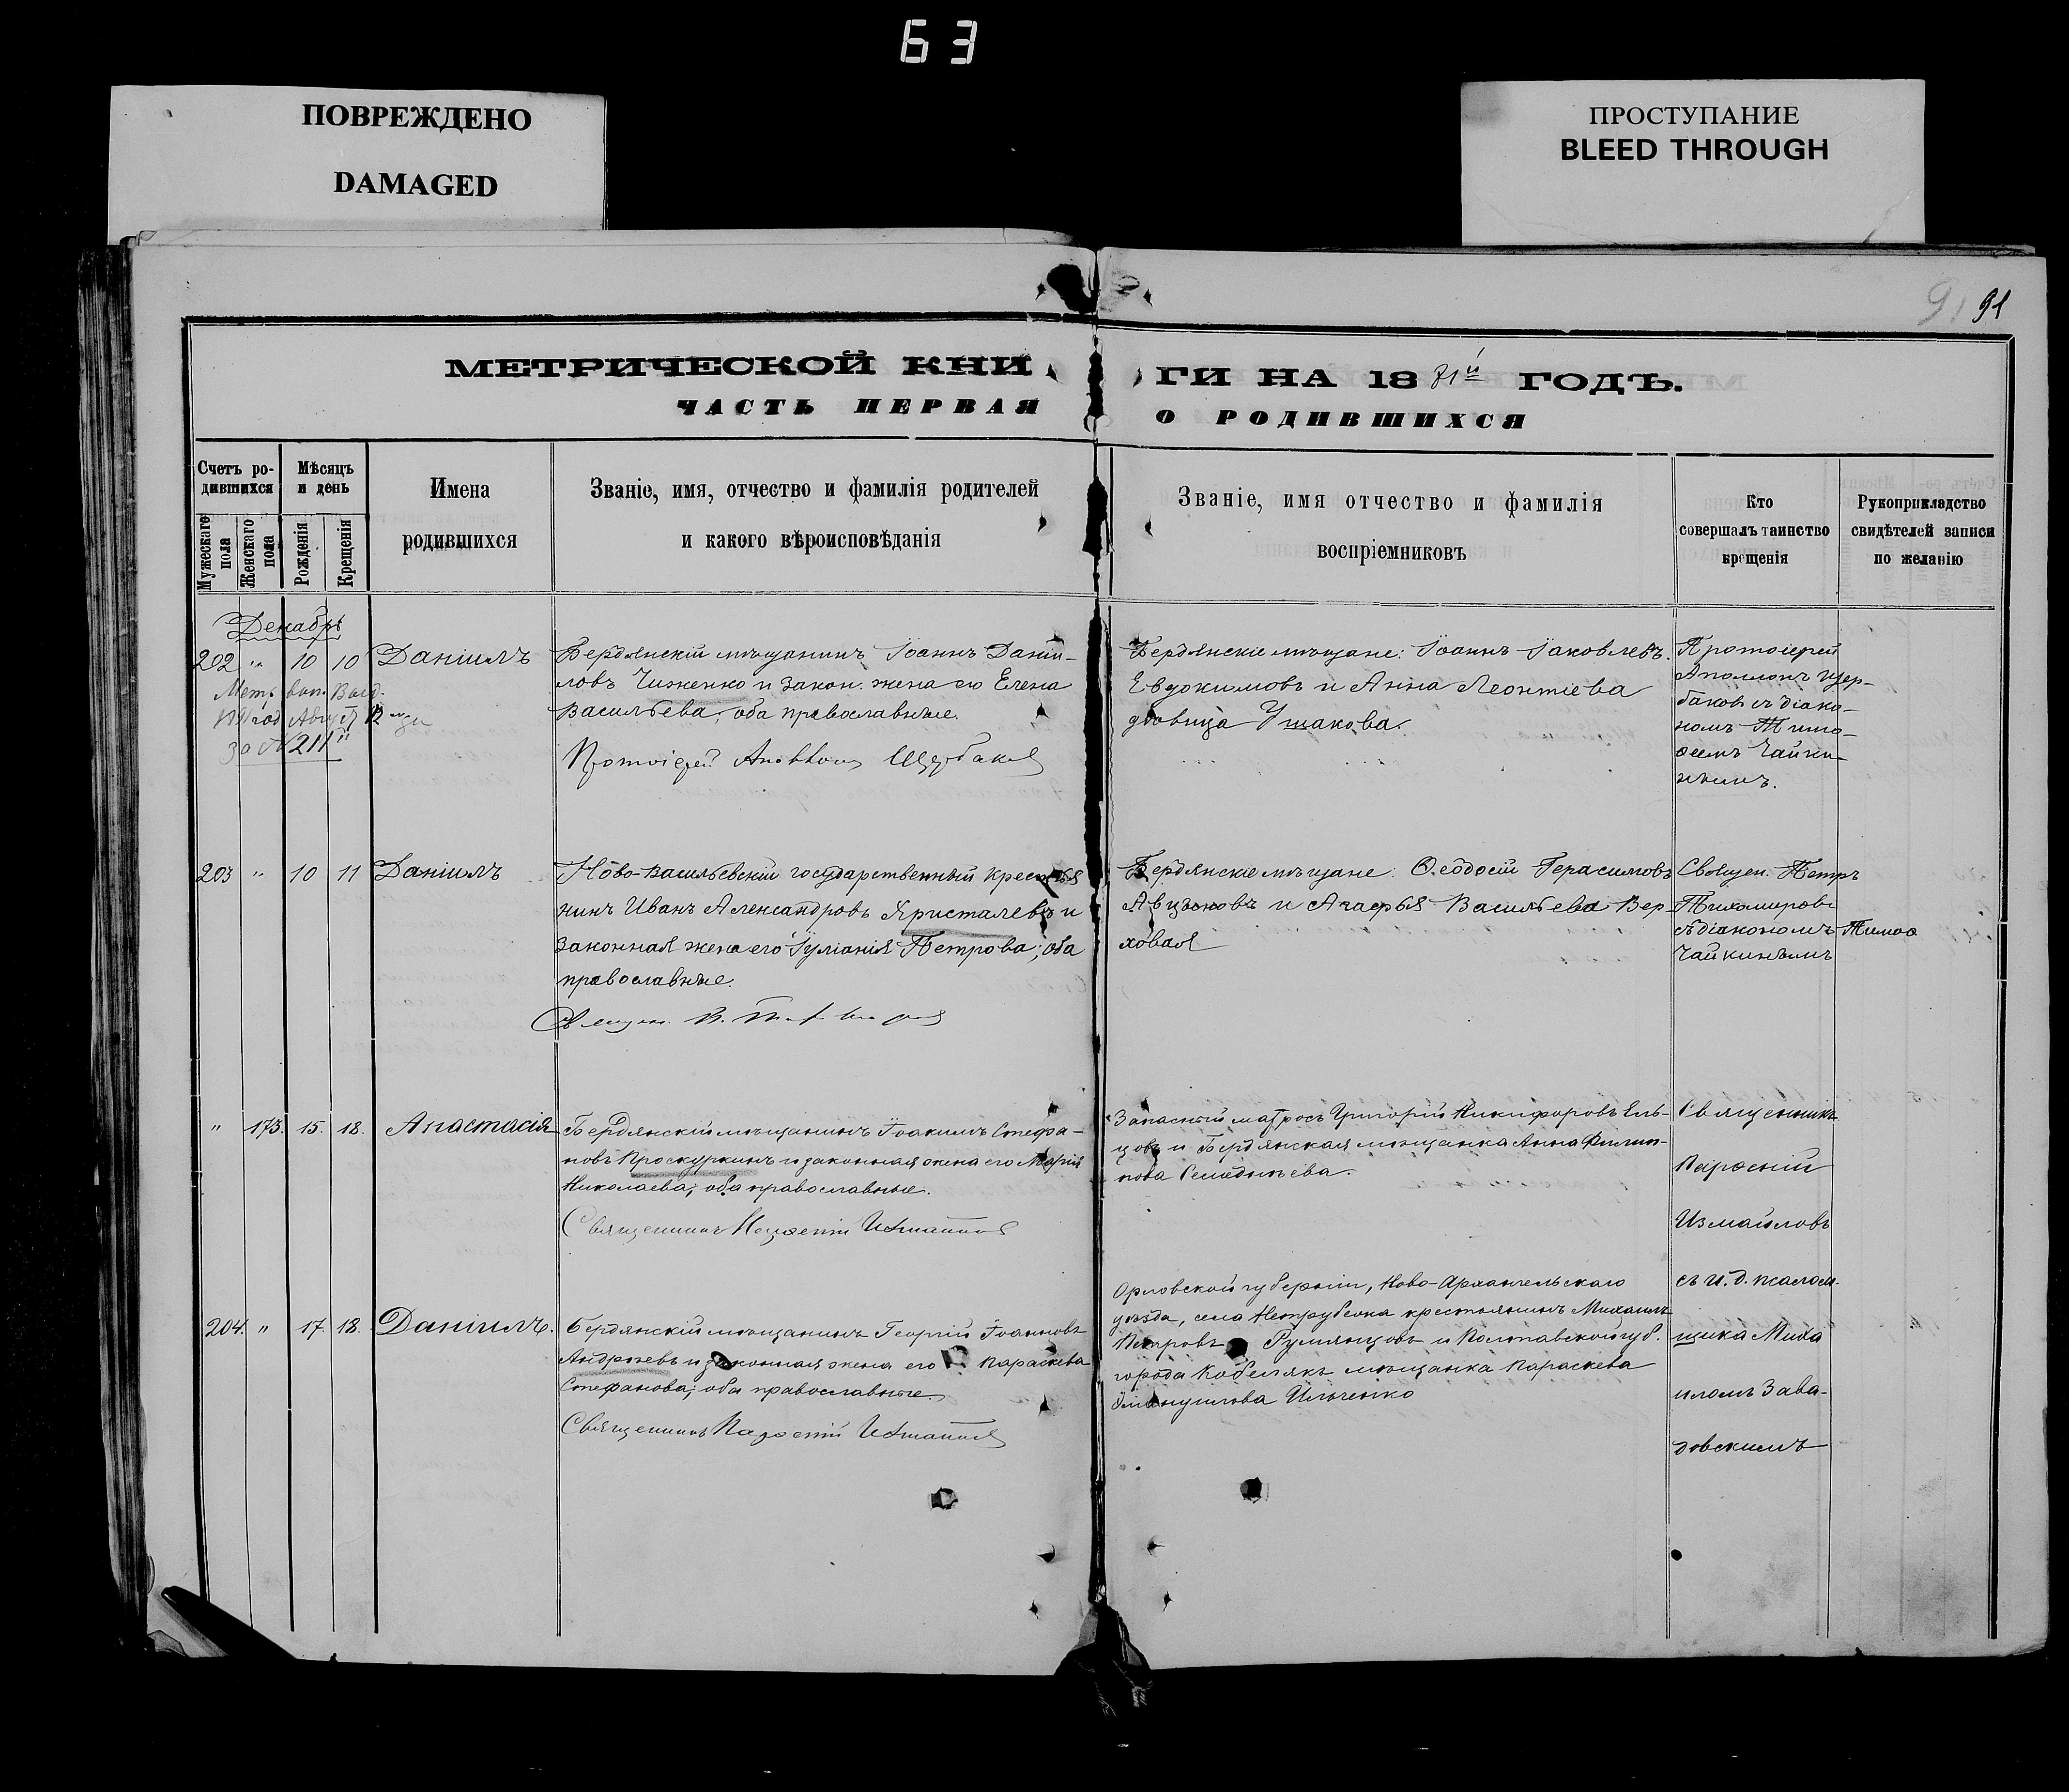 63
ПОВРЕЖДЕНО
DAMAGED
ПРОСТУПАНИЕ
BLEED THROUGH
91 91
МЕТРИЧЕСКОЙ КНИ
ГИ НА 18 71й ГОДЪ.
ЧАСТЬ ПЕРВАЯ
О РОДИВШИХСЯ
Счетъ ро-
дившихся
Мужескаго пола
Женскаго пола
Мѣсяцъ
и день
Рожденія
Крещенія
Имена
родившихся
Званіе, имя, отчество и фамилія родителей
и какого вѣроисповѣданія
Званіе, имя отчество и фамилія
воспріемниковъ
Кто
совершалъ таинство
крещенія
Рукоприкладство
свидѣтелей записи
по желанію
Декабрь
202 " 10 10 Даніилъ
Метр. вып. Выд.
за № 211
Бердянскій мѣщанинъ Іоаннъ Даніи-
ловъ Чиженко и закон. жена его Елена
Васильева, оба православные.
Протоіерей Аполлонъ Щербаковъ
Бердянскіе мѣщане: Іоаннъ Іаковлевъ
Евдокимовъ и Анна Леонтіева
вдовица Ушакова.
Протоіерей
Аполлонъ Щер-
баковъ съ діако-
номъ Тимо-
ѳеемъ Чайки-
нымъ.
203 " 10 11 Даніилъ
Ново-Васильевскій государственный кресть
нинъ Иванъ Александровъ Кристалевъ и
законная жена его Іуліанія Петрова; оба
православные.
Священ. П. Тихомировъ
Бердянскіе мѣщане: Ѳеодосій Герасимовъ
и Агафья Васильева Вер-
ховая
Священ. Петръ
Тихомировъ
съ діакономъ Тимоѳ
Чайкинымъ
" 173. 15. 18. Анастасія
Бердянскій мѣщанинъ Іоакимъ Стефа-
новъ Проскуркинъ и законная жена его Марія
Николаева; оба православные.
Священникъ Парѳеній Измайловъ
Запасный матросъ Григорій Никифоровъ Ель-
цовъ и Бердянская мѣщанка Анна Филип-
пова
Священникъ
Парѳеній
Измайловъ
съ и. д. псалом-
щика Миха
иломъ Зава-
довскимъ
204. " 17. 18. Даніилъ.
Бердянскій мѣщанинъ Георгій Іоанновъ
Андреевъ и законная жена его Параскева
Стефанова; оба православные.
Священникъ Парѳеній Измайловъ
Орловской губерніи, Ново-Архангельскаго
уѣзда, села крестьянинъ Михаилъ
Петровъ Румянцовъ и Полтавской губ.
города Кобелякъ мѣщанка Параскева
Эмануилова Ильченко